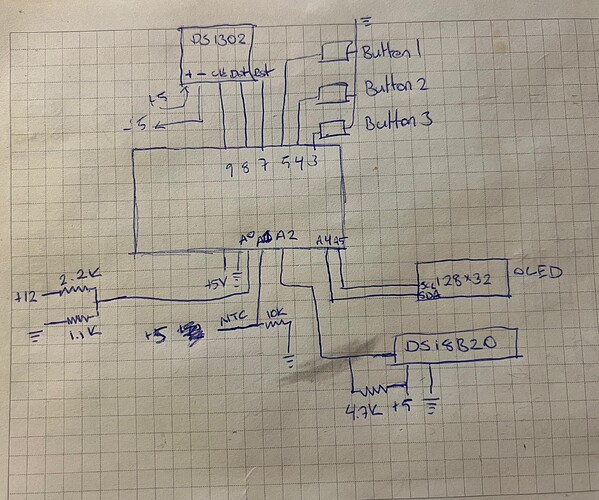 DS1302
+ - Clk Dat Rst
+5
-5
Button 1
Button 2
Button 3
9 8 7 5 4 3
A0 A1 A2 A4 A5
+5V
+12
2.2K
1.1K
+5
NTC
10K
SCL
SDA
128x32
OLED
DS18B20
4.7K
+5